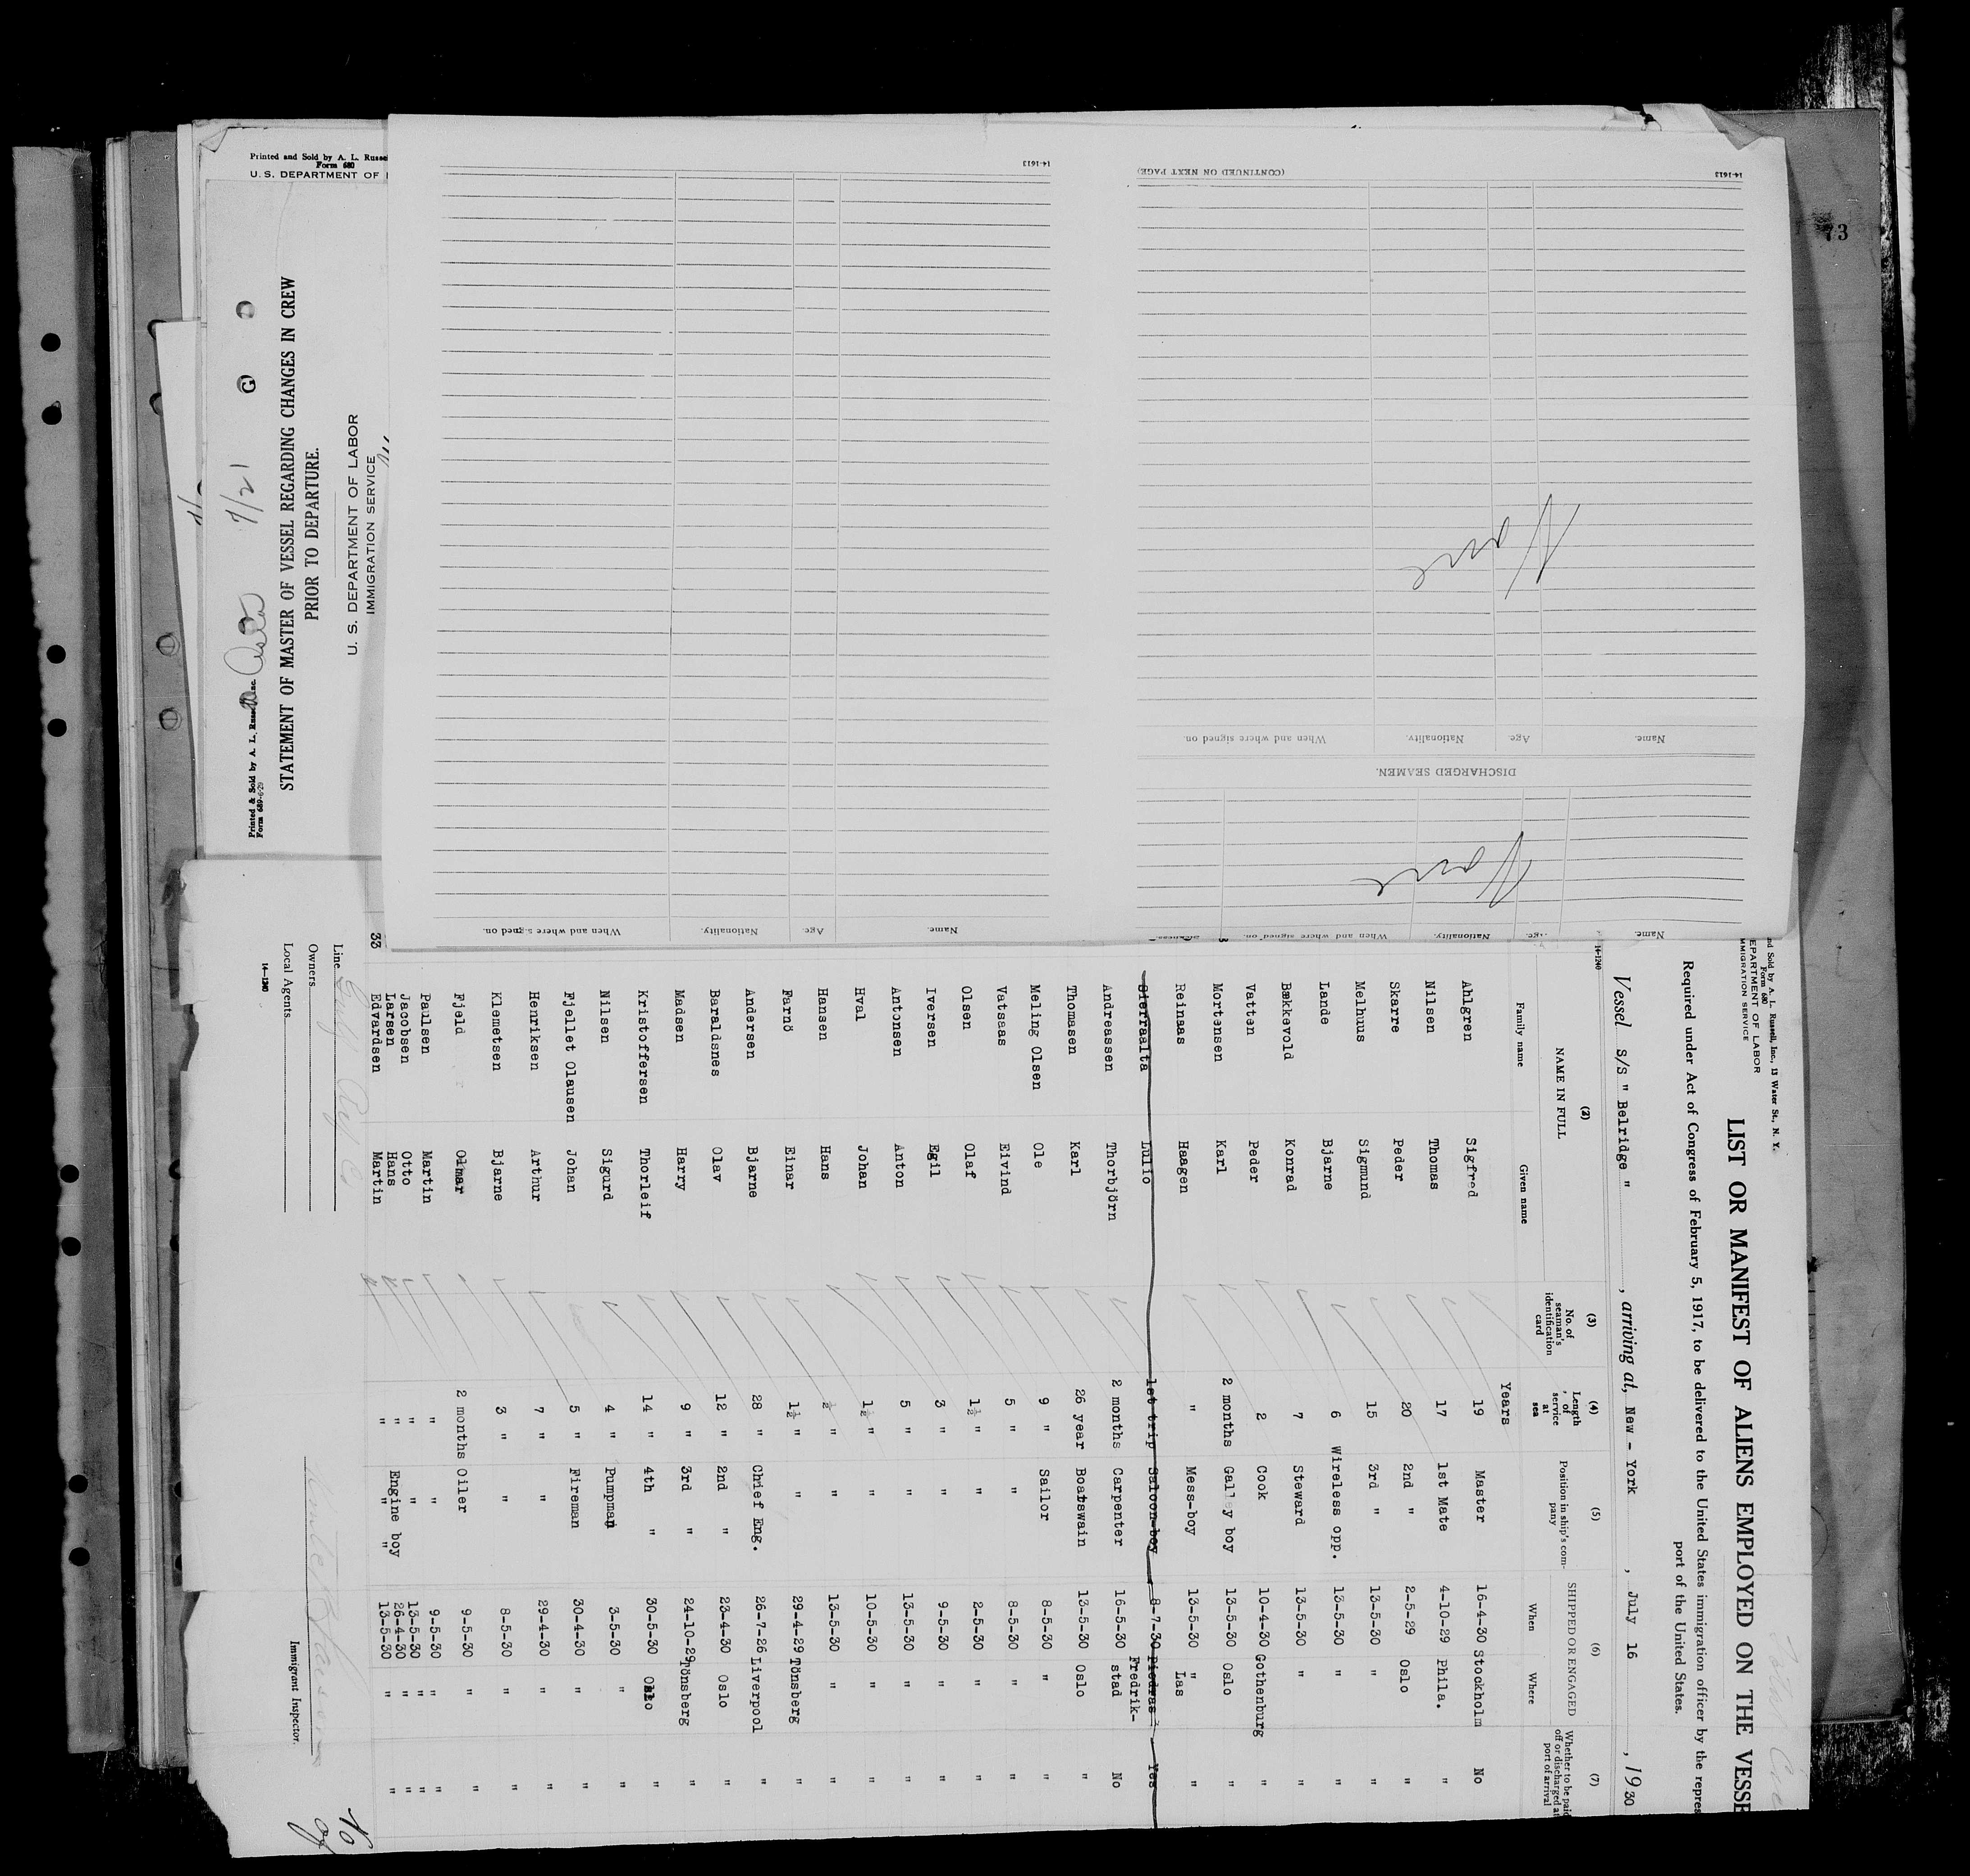 73
Printed and Sold by A. L. Russel
Form 680
U. S. DEPARTMENT OF
Printed & Sold by A. L. Russell, Inc.
Form 689-6-29
Oslo 7/21 G
STATEMENT OF MASTER OF VESSEL REGARDING CHANGES IN CREW
PRIOR TO DEPARTURE.
U. S. DEPARTMENT OF LABOR
IMMIGRATION SERVICE
Name. Age. Nationality. When and where signed on.
None
DISCHARGED SEAMEN.
Name. Age. Nationality. When and where signed on.
None
14-1613
(CONTINUED ON NEXT PAGE)
Name. Age. Nationality. When and where signed on.
14-1613
nd Sold by A. L. Russell, Inc., 13 Water St., N. Y.
Form 680
EPARTMENT OF LABOR
MMIGRATION SERVICE
LIST OR MANIFEST OF ALIENS EMPLOYED ON THE VESSE
Required under Act of Congress of February 5, 1917, to be delivered to the United States immigration officer by the repres
port of the United States.
Vessel S/S " Belridge ", arriving at, New - York, July 16, 1930
14-1240
(2) NAME IN FULL Family name Given name
(3) No. of seaman's identification card
(4) Length of service at sea
(5) Position in ship's company
(6) SHIPPED OR ENGAGED When Where
(7) Whether to be paid off or discharged at port of arrival
Years
Ahlgren Sigfred 19 Master 16-4-30 Stockholm No
Nilsen Thomas 17 1st Mate 4-10-29 Phila. "
Skarre Peder 20 2nd " 2-5-29 Oslo "
Melhuus Sigmund 15 3rd " 13-5-30 " "
Lande Bjarne 6 Wireless opp. 13-5-30 " "
Bækkevold Konrad 7 Steward 13-5-30 " "
Vatten Peder 2 Cook 10-4-30 Gothenburg "
Mortensen Karl 2 months Galley boy 13-5-30 Oslo "
Reinaas Haagen " Mess-boy 13-5-30 " "
Las
Sierraalta Lulio 1st trip Saloon-boy 8-7-30 Piedras Yes
Fredrik-
Andreassen Thorbjörn 2 months Carpenter 16-5-30 stad No
Thomasen Karl 26 year Boatswain 13-5-30 Oslo "
Meling Olsen Ole 9 " Sailor 8-5-30 " "
Vatsaas Eivind 5 " " 8-5-30 " "
Olsen Olaf 1½ " " 2-5-30 " "
Iversen Egil 3 " " 9-5-30 " "
Antonsen Anton 5 " " 13-5-30 " "
Hval Johan 1½ " " 10-5-30 " "
Hansen Hans ½ " " 13-5-30 " "
Farnö Einar 1½ " " 29-4-29 Tönsberg "
Andersen Bjarne 28 " Chief Eng. 26-7-26 Liverpool "
Baraldsnes Olav 12 " 2nd " 23-4-30 Oslo "
Madsen Harry 9 " 3rd " 24-10-29 Tönsberg "
Kristoffersen Thorleif 14 " 4th " 30-5-30 Oslo "
Nilsen Sigurd 4 " Pumpman 3-5-30 " "
Fjellet Olausen Johan 5 " Fireman 30-4-30 " "
Henriksen Arthur 7 " " 29-4-30 " "
Klemetsen Bjarne 3 " " 8-5-30 " "
Fjeld 2 months Oiler 9-5-30 " "
Paulsen Martin " " 9-5-30 " "
Jacobsen Otto " " 13-5-30 " "
Larsen Hans " Engine boy 26-4-30 " "
33 Edvardsen Martin " " " 13-5-30 " "
Line
Owners
Local Agents
14-1240
Immigrant Inspector.